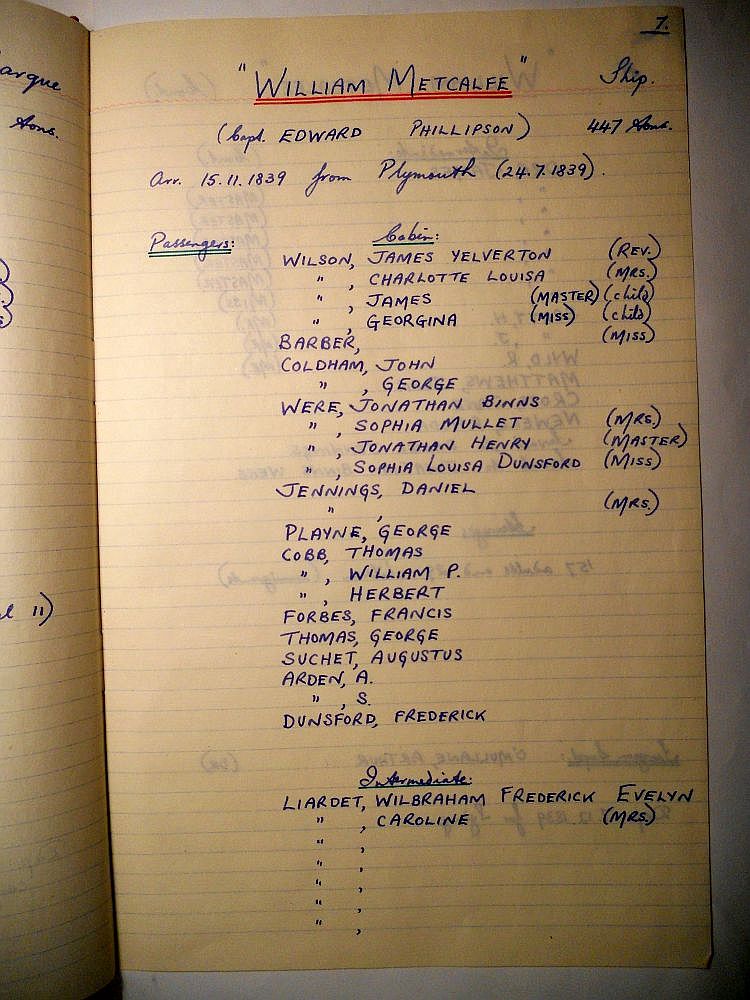 7.
"WILLIAM METCALFE" Ship.
(Capt. EDWARD PHILLIPSON) 447 tons.
Arr. 15.11.1839 from Plymouth (24.7.1839).
Passengers: Cabin:
WILSON, JAMES YELVERTON (REV.)
" , CHARLOTTE LOUISA (MRS.)
" , JAMES (MASTER) (child)
" , GEORGINA (MISS) (child)
BARBER, (MISS)
COLDHAM, JOHN
" , GEORGE
WERE, JONATHAN BINNS
" , SOPHIA MULLET (MRS.)
" , JONATHAN HENRY (MASTER)
" , SOPHIA LOUISA DUNSFORD (MISS)
JENNINGS, DANIEL
" , (MRS.)
PLAYNE, GEORGE
COBB, THOMAS
" , WILLIAM P.
" , HERBERT
FORBES, FRANCIS
THOMAS, GEORGE
SUCHET, AUGUSTUS
ARDEN, A.
" , S.
DUNSFORD, FREDERICK
Intermediate:
LIARDET, WILBRAHAM FREDERICK EVELYN
" , CAROLINE (MRS.)
" ,
" ,
" ,
" ,
" ,
arque
tons.
11)